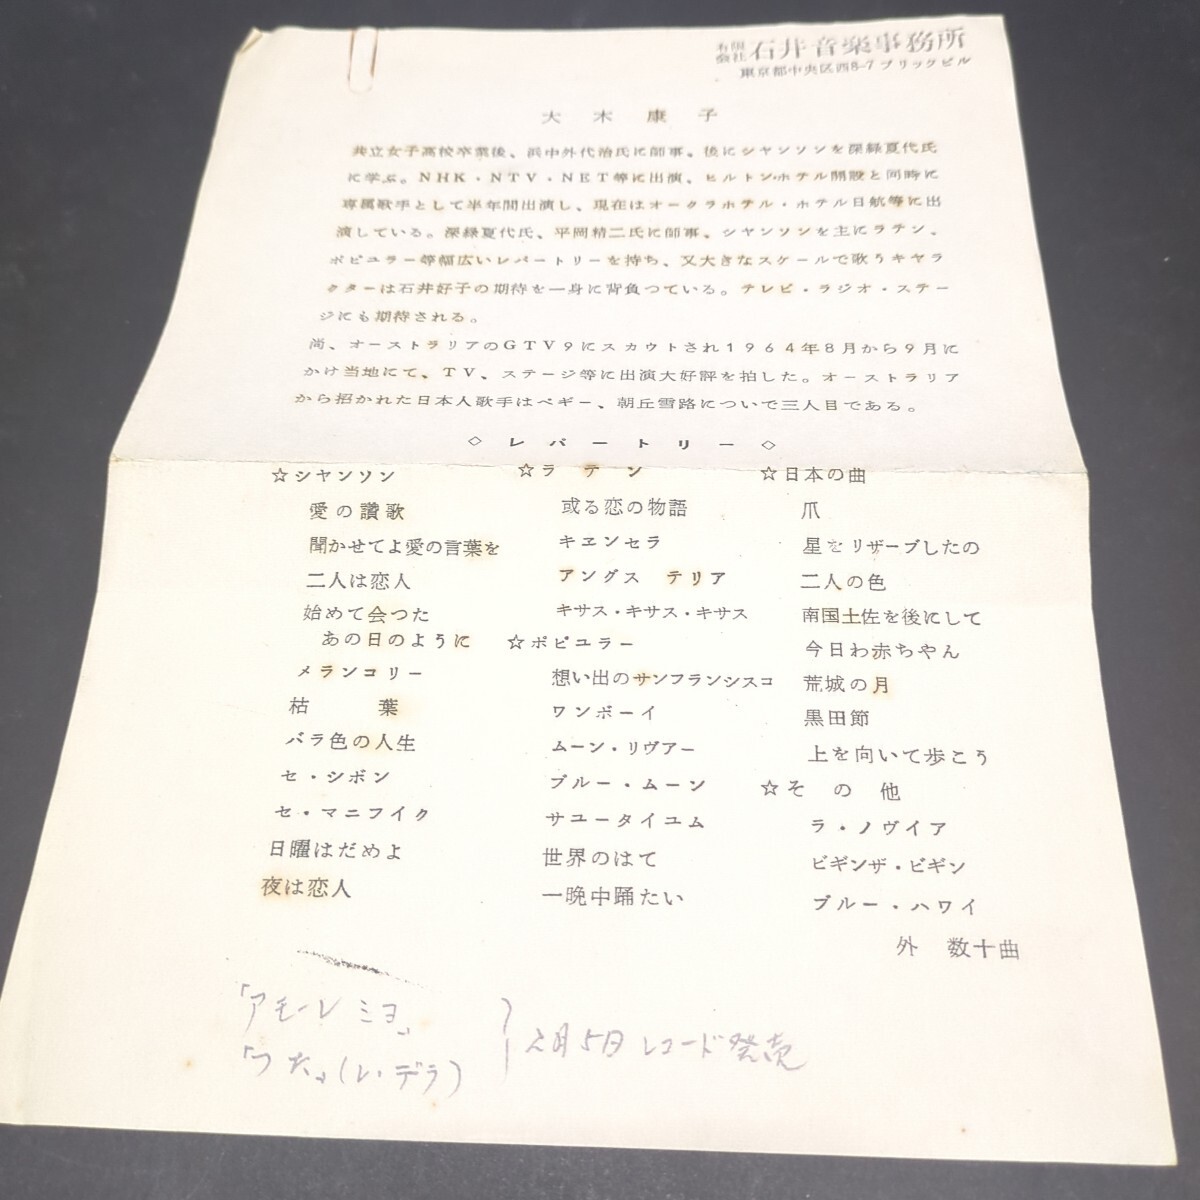 有限会社 石井音楽事務所
東京都中央区西8-7 ブリックビル
大木康子
共立女子高校卒業後、浜中外代治氏に師事、後にシヤンソンを深緑夏代氏
に学ぶ。NHK・NTV・NET等に出演、ヒルトン・ホテル開設と同時に
専属歌手として半年間出演し、現在はオークラホテル・ホテル日航等に出
演している。深緑夏代氏、平岡精二氏に師事、シヤンソンを主にラテン、
ポピユラー等幅広いレパートリーを持ち、又大きなスケールで歌うキヤラ
クターは石井好子の期待を一身に背負つている。テレビ・ラジオ・ステー
ジにも期待される。
尚、オーストラリアのGTV9にスカウトされ1964年8月から9月に
かけ当地にて、TV、ステージ等に出演大好評を拍した。オーストラリア
から招かれた日本人歌手はペギー、朝丘雪路についで三人目である。
◇レパートリー◇
☆シヤンソン
愛の讃歌
聞かせてよ愛の言葉を
二人は恋人
始めて会つた
あの日のように
メランコリー
枯葉
バラ色の人生
セ・シボン
セ・マニフイク
日曜はだめよ
夜は恋人
☆ラテン
或る恋の物語
キエンセラ
アングス テリア
キサス・キサス・キサス
☆ポピユラー
想い出のサンフランシスコ
ワンボーイ
ムーン・リヴアー
ブルー・ムーン
サユータイユム
世界のはて
一晩中踊たい
☆日本の曲
爪
星をリザーブしたの
二人の色
南国土佐を後にして
今日わ赤ちやん
荒城の月
黒田節
上を向いて歩こう
☆その他
ラ・ノヴイア
ビギンザ・ビギン
ブルー・ハワイ
外 数十曲
「アモーレ ミヨ」
「つた」(レ・デラ)
2月5日 レコード発売